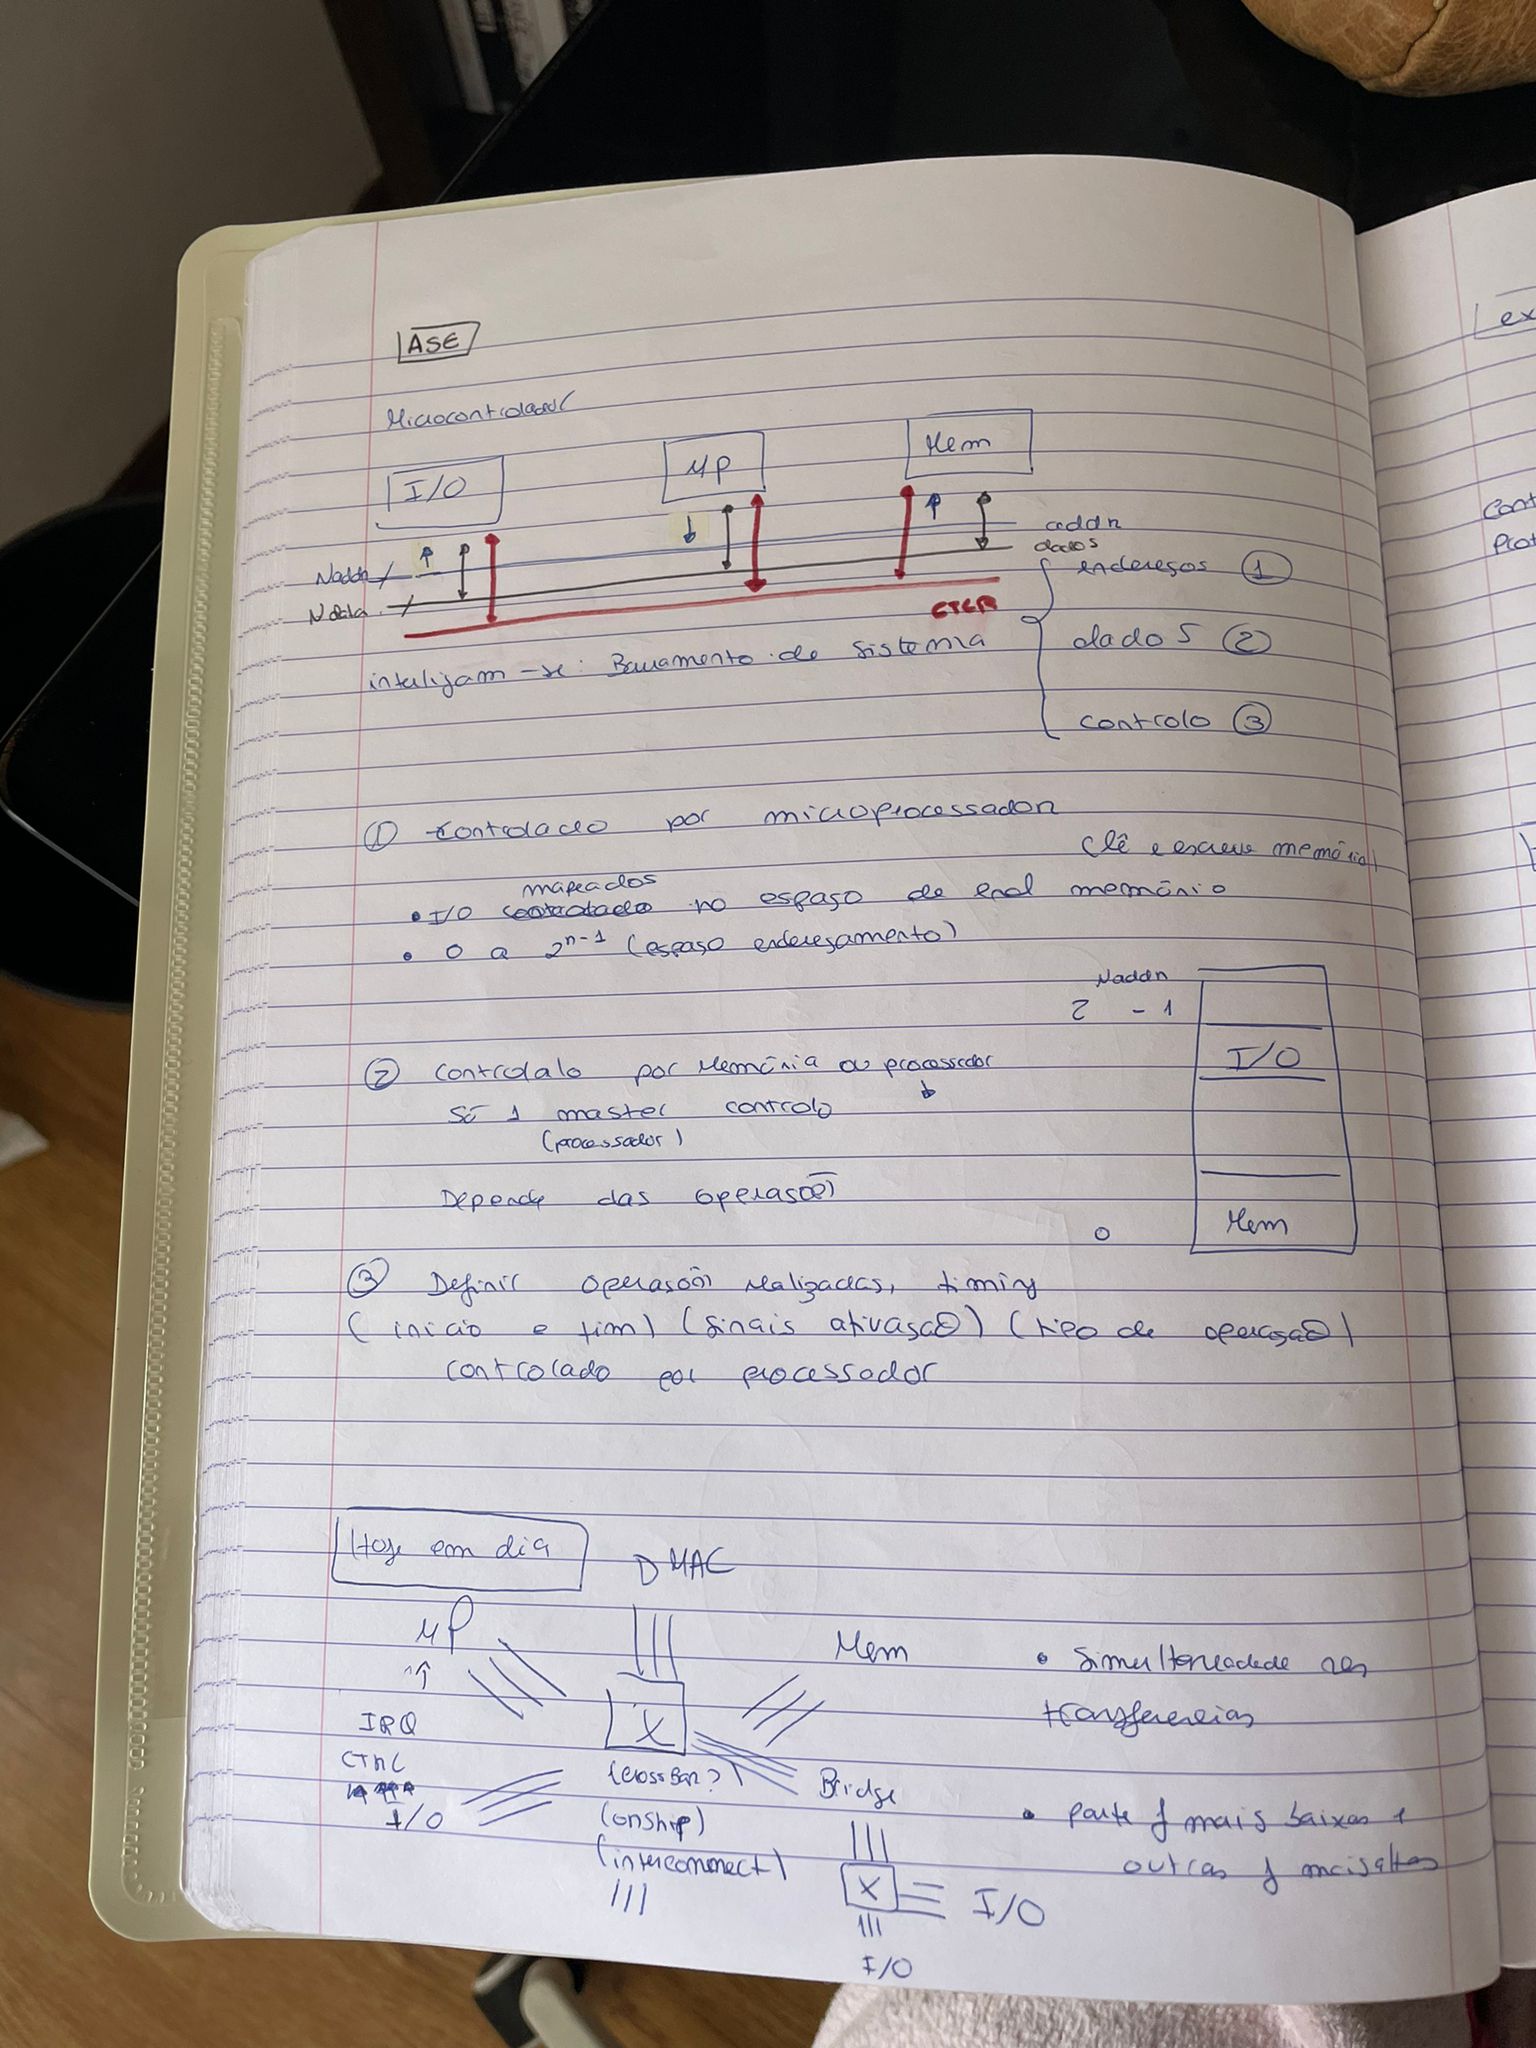 ASE
Microcontrolador
I/O
μP
Mem
Naddr
addr
Ndata
dados
CTLR
endereços 1
dados 2
controlo 3
interligam-se: Barramento de Sistema
1 controlado por microprocessador
(lê e escreve memória)
mapeados
• I/O controlado no espaço de end memória
• 0 a 2^n-1 (espaço endereçamento)
Naddr
2 - 1
I/O
Mem
0
2 controlalo por Memória ou processador
Só 1 master controlo
(processador)
Depende das operações
3 Definir operações realizadas, timing
(inicio e fim) (sinais ativação) (tipo de operação)
controlado por processador
Hoje em dia
DMAC
μP
Mem
• Simultaneadade nas
transferencias
IRQ
CTRL
I/O
X
(crossBar?)
(onship)
(interconnect)
Bridge
• parte f mais baixas e
outras f mais altas
X
I/O
I/O
ex
Cont
Prot